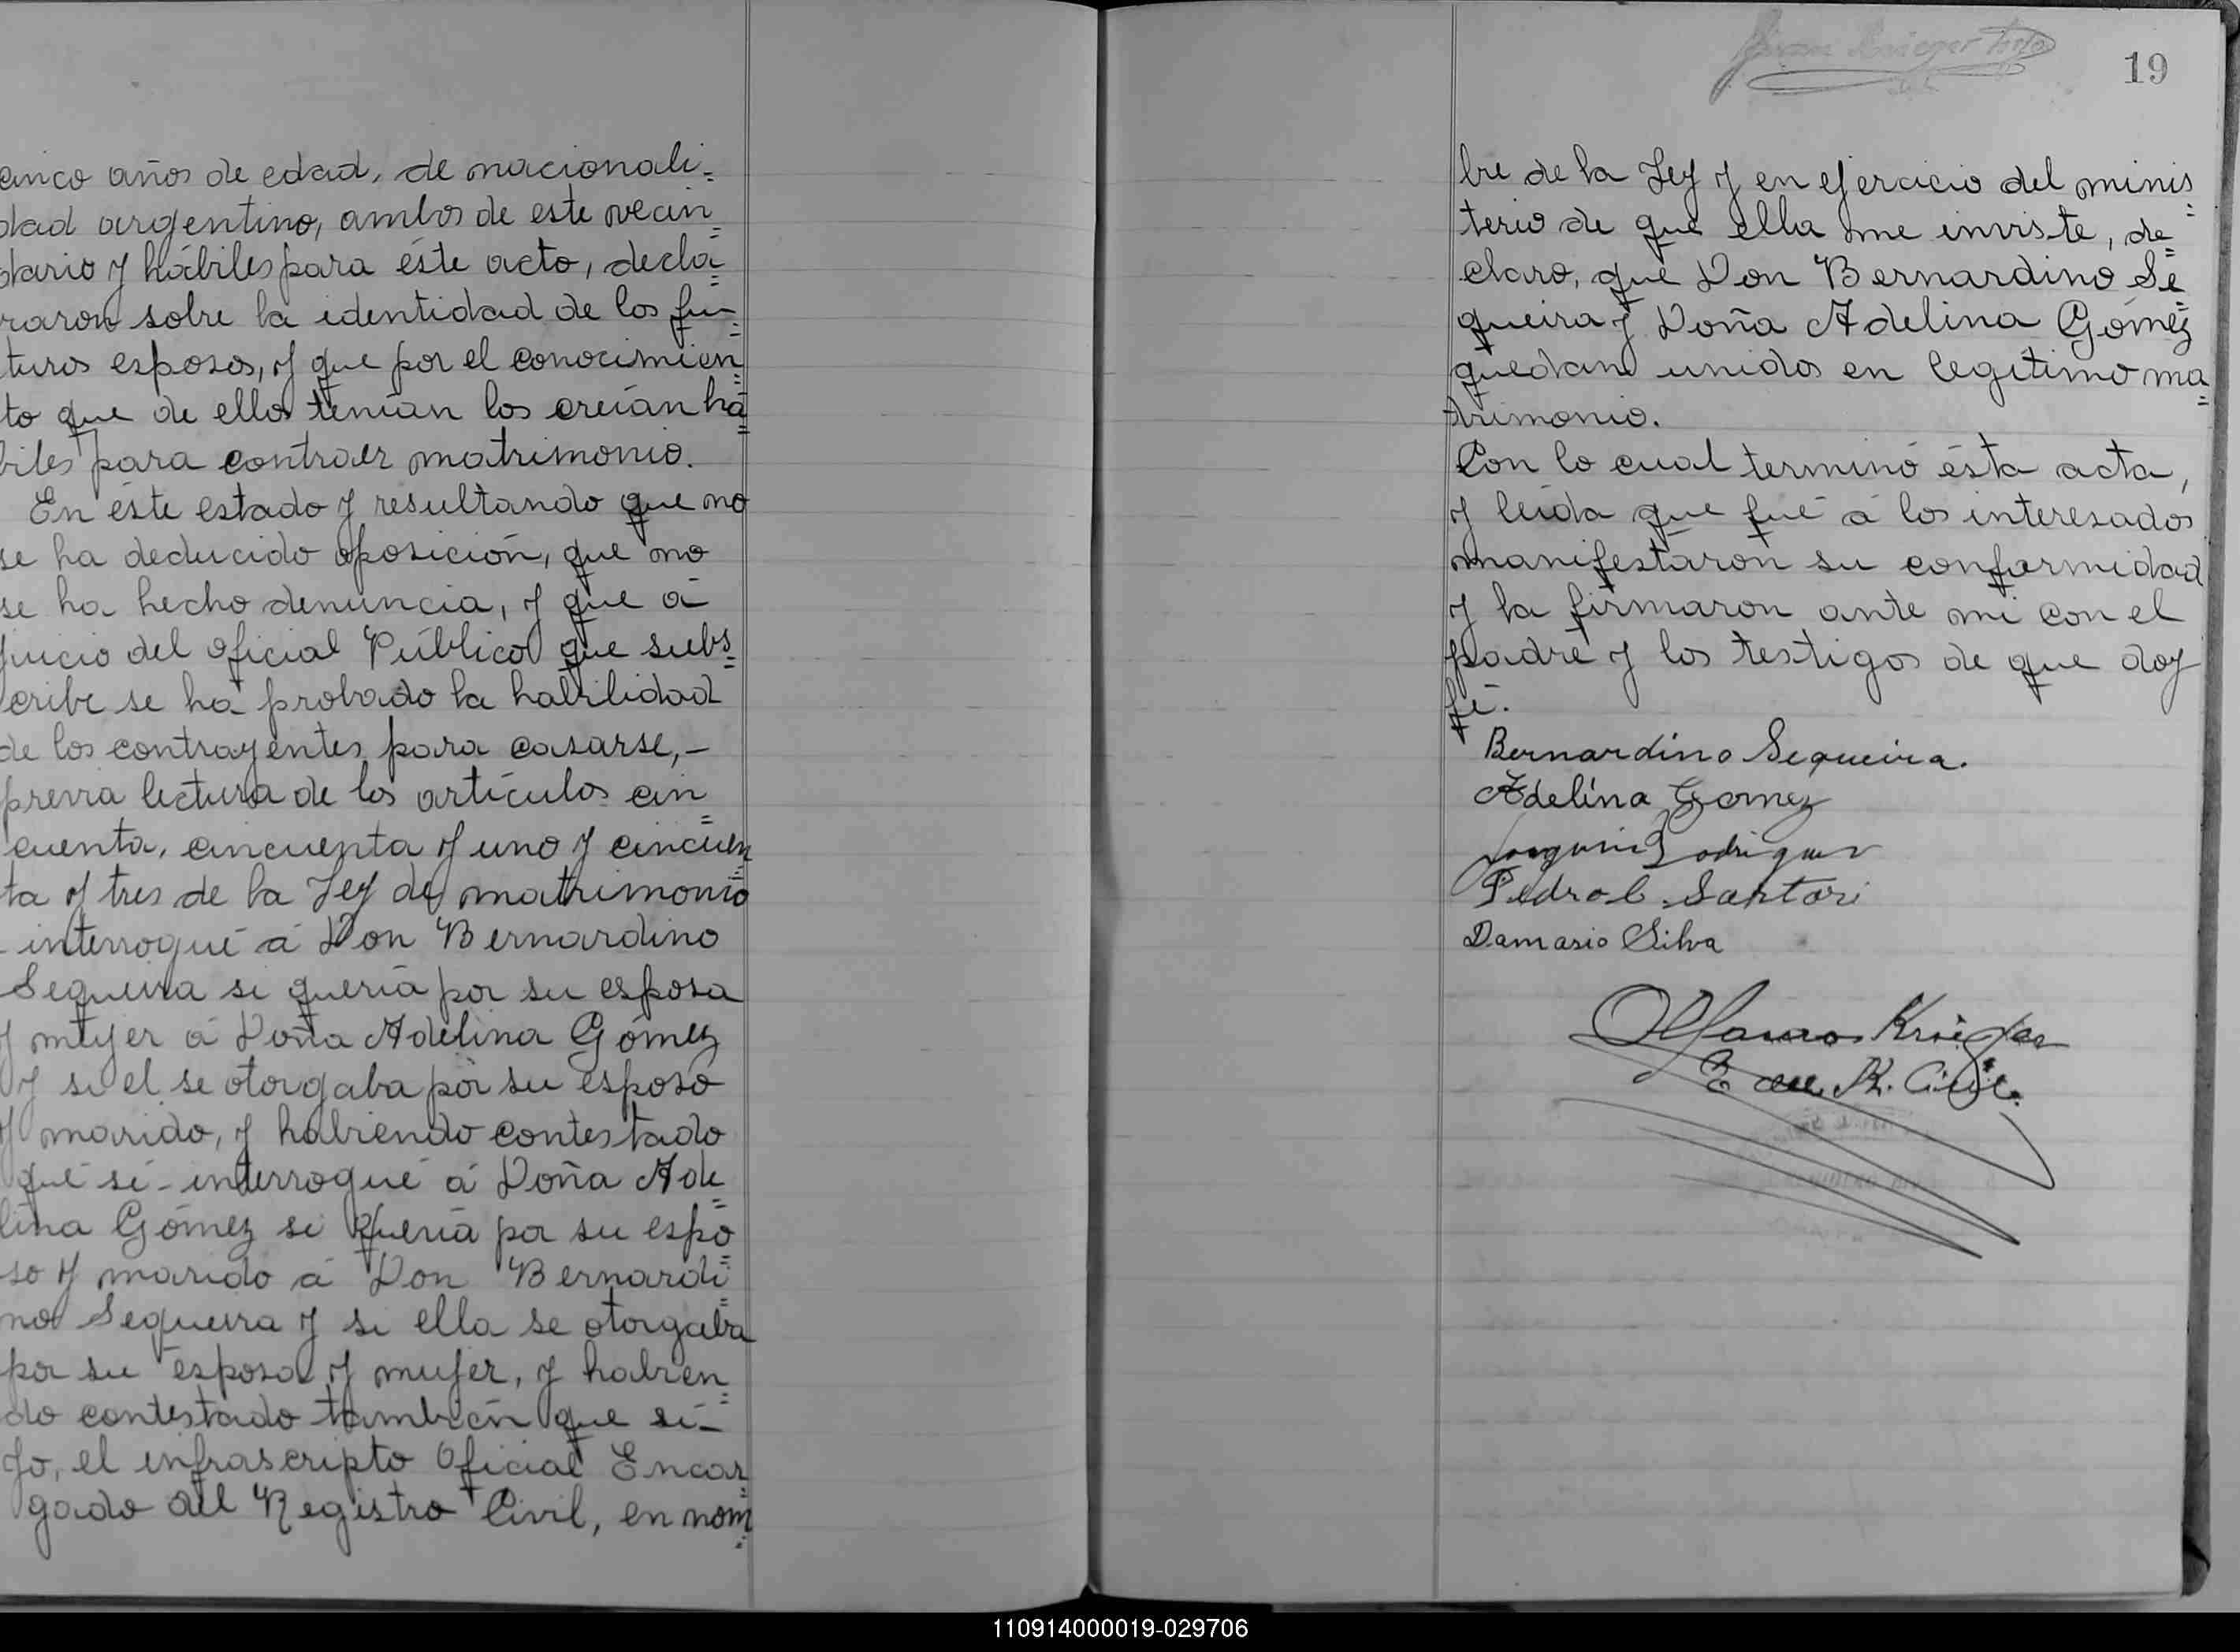 cinco años de edad, de nacionali=
dad argentino, ambos de este vecin=
dario y hábiles para éste acto, decla=
raron sobre la identidad de los fu=
turos esposos, y que por el conocimien=
to que de ellos tenían los creían há=
biles para contraer matrimonio.
En éste estado y resultando que no
se ha deducido oposición, que no
se ha hecho denuncia, y que á
juicio del oficial Público que subs=
cribe se ha probado la habilidad
de los contrayentes para casarse,-
previa lectura de los artículos cin=
cuenta, cincuenta y uno y cincuen=
ta y tres de la Ley de matrimonio
interrogué á Don Bernardino
Sequeira si quería por su esposa
y mujer á Doña Adelina Gómez
y si el se otorgaba por su esposo
y marido, y habiendo contestado
qué sí - interrogué á Doña Ade=
lina Gómez si quería por su espo=
so y marido á Don Bernardi=
no Sequeira y si ella se otorgaba
por su esposa y mujer, y habien=
do contestado también que sí-
Yo, el infrascripto Oficial Encar=
gado del Registro Civil, en nom=
19
bre de la Ley y en ejercicio del minis=
terio de que ella me inviste, de=
claro, que Don Bernardino Se=
queira y Doña Adelina Gómez
quedan unidos en legítimo ma=
trimonio.
Con lo cual terminó ésta acta,
y leída que fué á los interesados
manifestaron su conformidad
y la firmaron ante mi con el
padre y los testigos de que doy
fé.
Bernardino Sequeira.
Adelina Gomez
Pedro C. Sartori
Damasio Silva
Krieger
E del R. Civil.
110914000019-029706